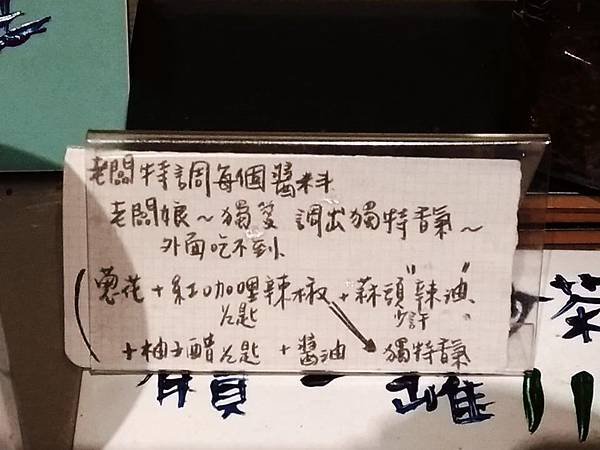 老闆特調每個醬料
老闆娘～獨愛 調出獨特香氣～
外面吃不到
蔥花+紅咖哩辣椒+蒜頭"辣油"
½匙 少許
+柚子醋½匙 +醬油 獨特香氣
茶